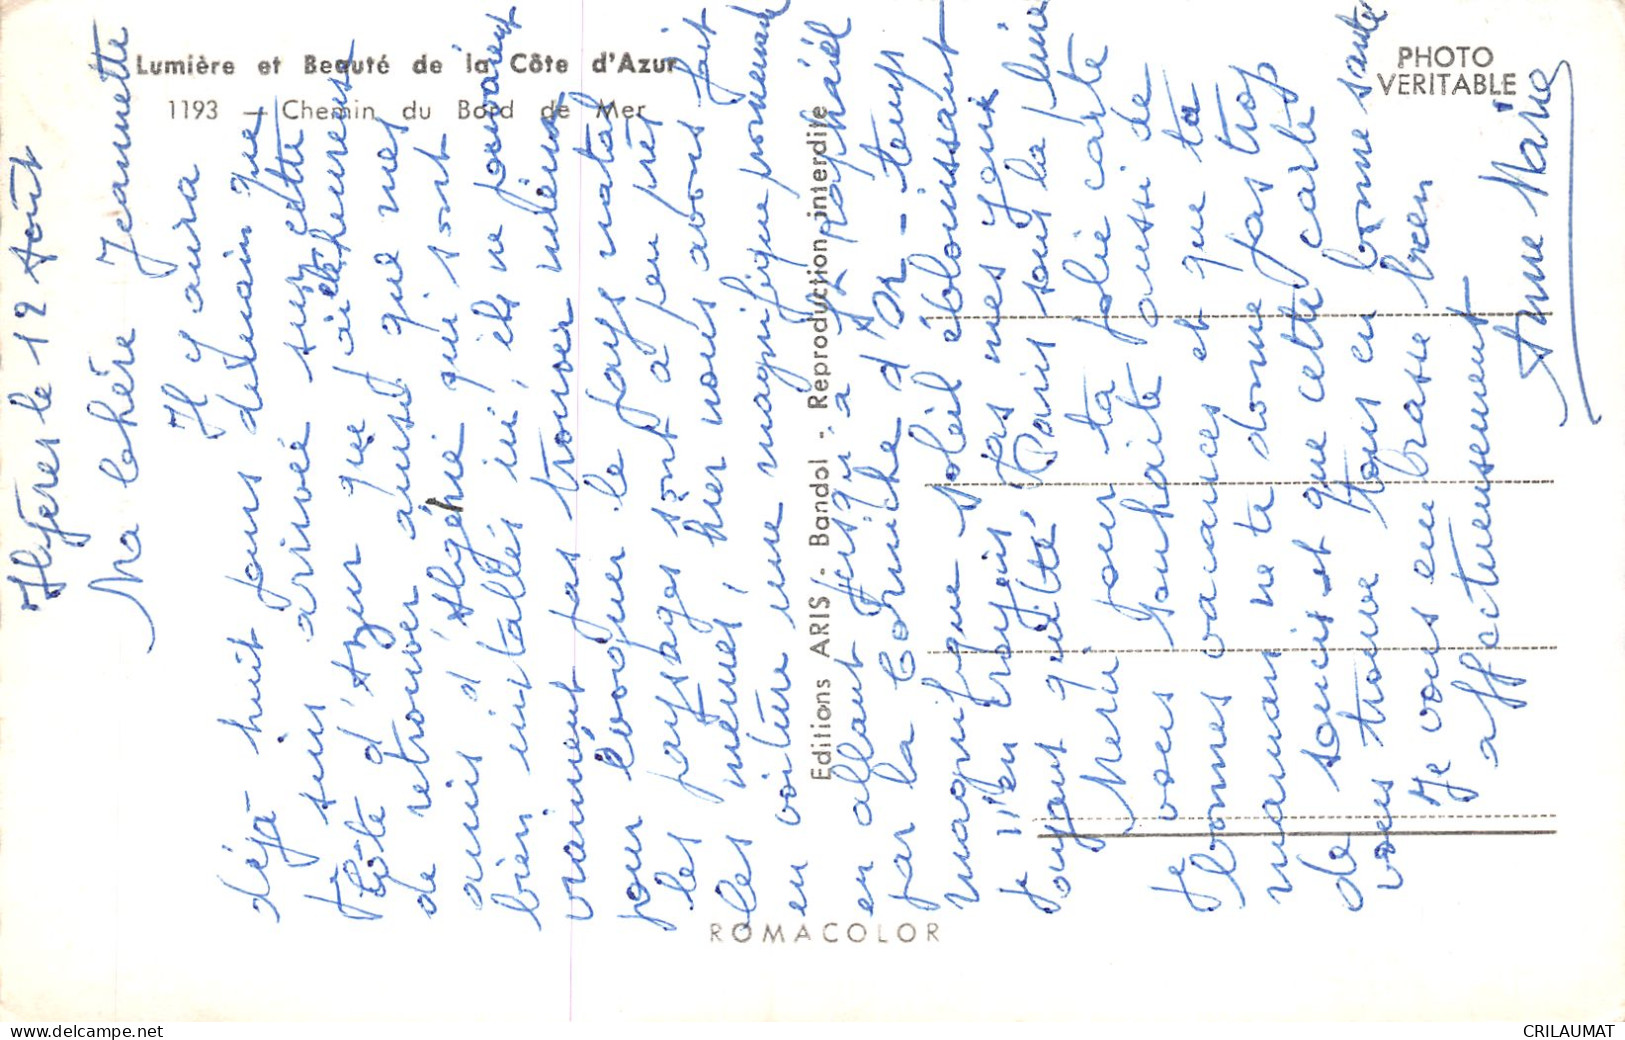 Lumière et Beauté de la Côte d'Azur
1193 - Chemin du Bord de Mer
PHOTO
VERITABLE
Editions ARIS - Bandol - Reproduction interdite
ROMACOLOR
Hyères le 12 Août
Ma chère Jeannette
Il y aura
déjà huit jours demain que
je suis arrivée sur cette
Côte d'Azur que j'ai été heureuse
de retrouver ainsi que mes
amis d'Algérie qui sont
bien installés ici, ils ne pouvaient
vraiment pas trouver mieux
pour évoquer le pays natal
les paysages sont à peu près
les mêmes, hier nous avons fait
en voiture une magnifique promenade
en allant jusqu'à St Raphaël
par la Corniche d'Or - temps
magnifique soleil éblouissant
je n'en croyais pas mes yeux
ayant quitté Paris sous la pluie
Merci pour ta jolie carte
je vous souhaite aussi de
bonnes vacances et que ta
maman ne te donne pas trop
de soucis et que cette carte
vous trouve tous en bonne santé
Je vous embrasse bien
affectueusement
Anne Marie
CRILAUMAT
www.delcampe.net